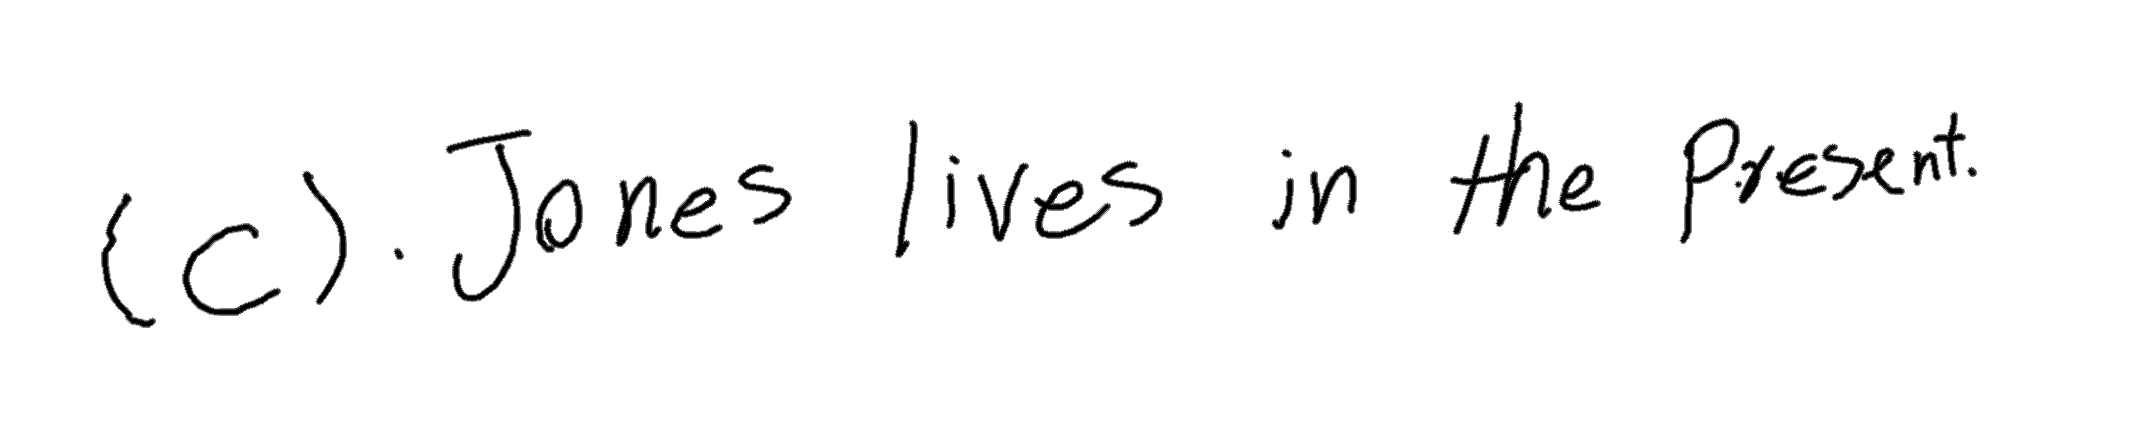 (c). Jones lives in the present.